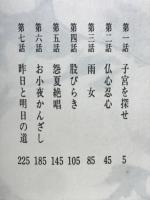 第一話 子宮を探せ 5
第二話 仏心忍心 45
第三話 雨女 85
第四話 股びらき 105
第五話 怨夏絶唱 145
第六話 お小夜かんざし 185
第七話 昨日と明日の道 225